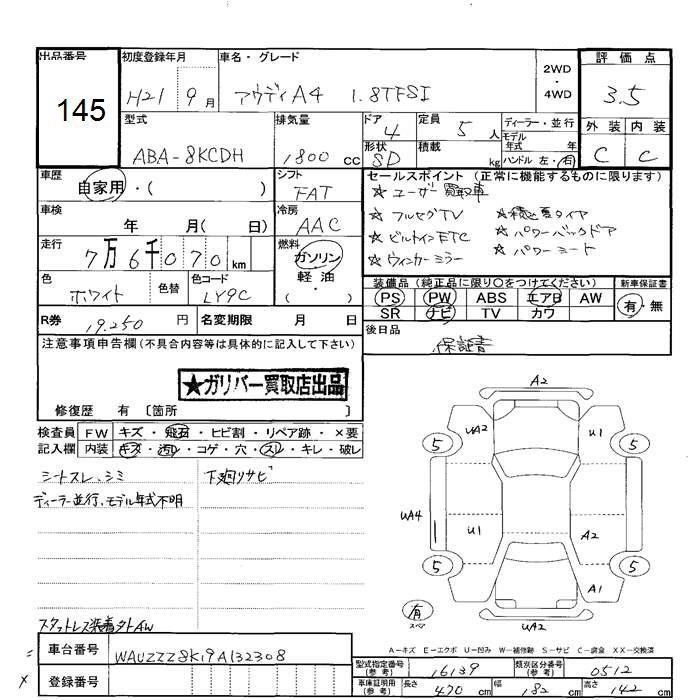 出品番号
145
初度登録年月
H21 9月
車名・グレード
アウディA4 1.8TFSI
2WD
・
4WD
評価点
3.5
外装 内装
C C
型式
ABA-8KCDH
排気量
1800 cc
ドア
4
形状
SD
定員
5 人
積載
kg
ディーラー・並行
モデル
年式 年
ハンドル 左・右
車歴
自家用・( )
シフト
FAT
車検
年 月( 日)
冷房
AAC
走行
7万6千070km
燃料
ガソリン
軽油
・( )
色
ホワイト
色替
色コード
LY9C
R券
19.250 円
名変期限 月 日
セールスポイント (正常に機能するものに限ります)
☆ユーザー買取車
☆フルセグTV ☆積込夏タイヤ
☆ビルトインETC ☆パワーバックドア
☆ウィンカーミラー ☆パワーシート
装備品 (純正品に限り○をつけてください)
PS PW ABS エアB AW
SR ナビ TV カワ
新車保証書
有・無
後日品
保証書
注意事項申告欄(不具合内容等は具体的に記入して下さい)
★ガリバー買取店出品
修復歴 有 〔箇所 〕
検査員
記入欄
FW キズ・飛石・ヒビ割・リペア跡・×要
内装 キズ・汚レ・コゲ・穴・スレ・キレ・破レ
シートスレ、シミ 下廻りサビ
ディーラー並行、モデル年式不明
スタットレス装着外AW
A2
UA2 U1
5 5
UA4
U1 A2
5 5
A1
有
スペア
UA2
A-キズ E-エクボ U-凹み W-補修跡 S-サビ C-腐食 XX-交換済
車台番号
WAUZZZ8K19A132308
登録番号
型式指定番号
(参考)
16139
類別区分番号
(参考)
0512
車庫証明用
(参考)
長さ 470 cm 幅 182 cm 高さ 142 cm